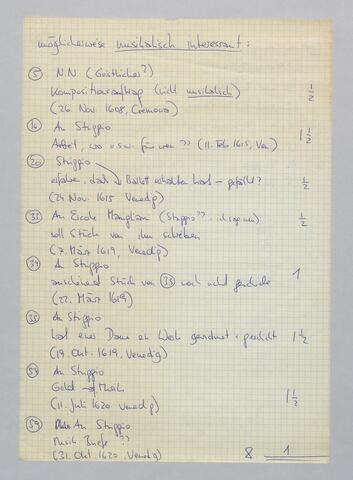 möglicherweise musikalisch interessant:
⑤ N.N (Geistlicher?) 1/2
Kompositionsauftrag (nicht musikalisch)
(26. Nov. 1608, Cremona)
⑯ An Striggio 1 1/2
Arbeit, wo u.s.w. für wen ?? (11. Feb. 1615, Ven)
⑳ Striggio
erfahren, daß Ballett erhalten hast - gefällt? 1/2
(24. Nov. 1615 Venedig)
㉝ An (Striggio??) 1/2
soll Stück von ihm schicken
(7. März 1619, Venedig)
㉞ An Striggio 1
anscheinend Stück von ㉝ noch nicht geschickt
(22. März 1619)
An Striggio
hast einer Dame ein Werk gewidmet + geschickt 1 1/2
(19. Okt. 1619, Venedig)
An Striggio
Geld → Musik 1 1/2
(11. Juli 1620 Venedig)
An Striggio
Musik Briefe ??
(31. Okt. 1620, Venedig) 8 1